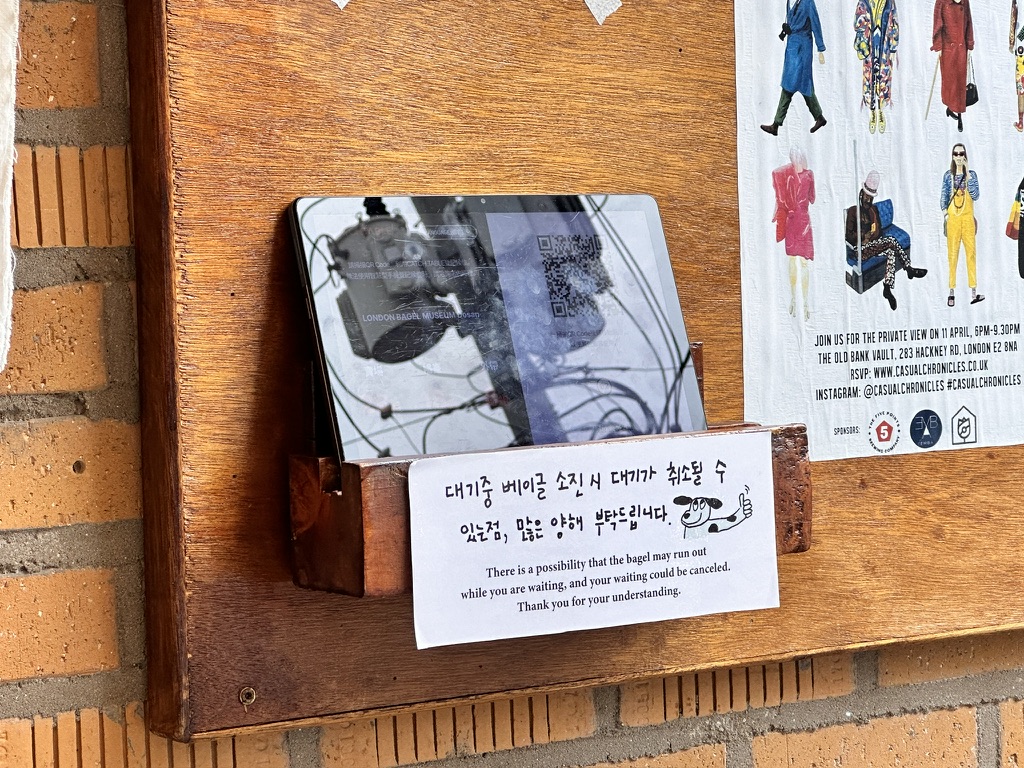 LONDON BAGEL MUSEUM Dosan
대기중 베이글 소진 시 대기가 취소될 수
있는점, 많은 양해 부탁드립니다.
There is a possibility that the bagel may run out
while you are waiting, and your waiting could be canceled.
Thank you for your understanding.
JOIN US FOR THE PRIVATE VIEW ON 11 APRIL, 6PM-9.30PM
THE OLD BANK VAULT, 283 HACKNEY RD, LONDON E2 8NA
RSVP: WWW.CASUALCHRONICLES.CO.UK
INSTAGRAM: @CASUALCHRONICLES #CASUALCHRONICLES
SPONSORS:
THE FIVE POINTS
5
BREWING COMPANY